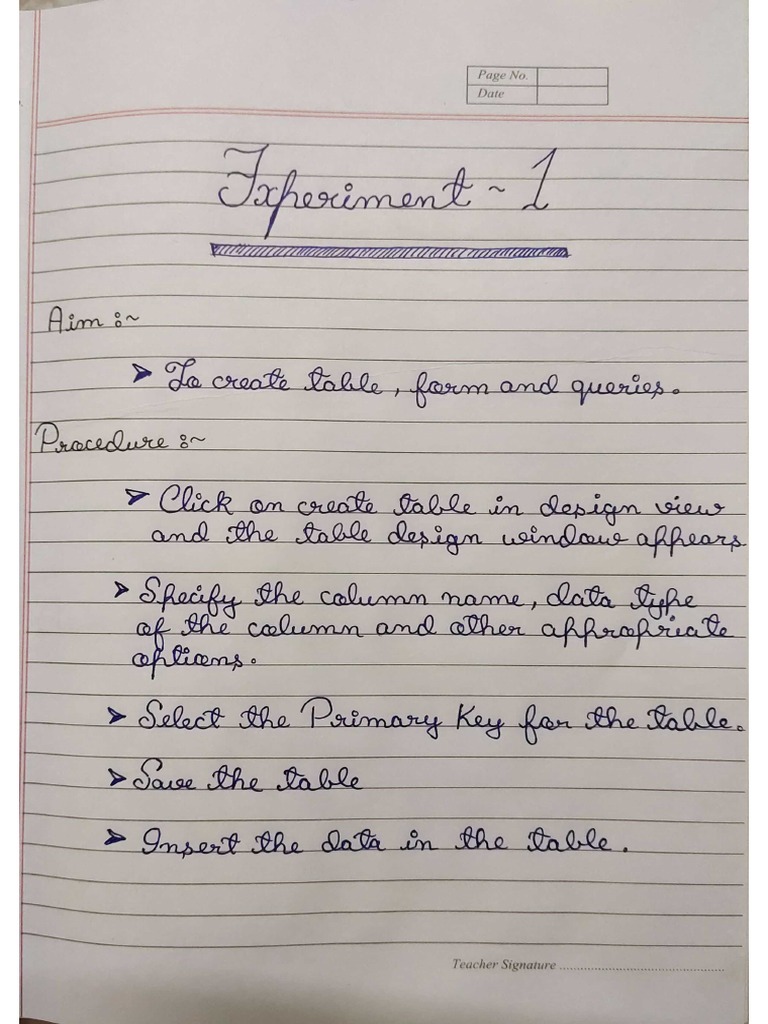 Page No.
Date
Experiment ~ 1
Aim :~
➤ To create table, form and queries.
Procedure :~
➤ Click on create table in design view
and the table design window appears
➤ Specify the column name, data type
of the column and other appropriate
options.
➤ Select the Primary Key for the table.
➤ Save the table
➤ Insert the data in the table.
Teacher Signature ........................................